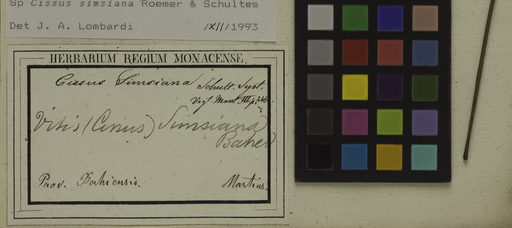 Sp Cissus simsiana Roemer & Schultes
Det J. A. Lombardi /XII/1993
HERBARIUM REGIUM MONACENSE.
Cissus Simsiana Schult. Syst.
Veg. Mant. III p. 246.
Vitis (Cissus) Simsiana
Baker
Prov. Bahiensis. Martius.